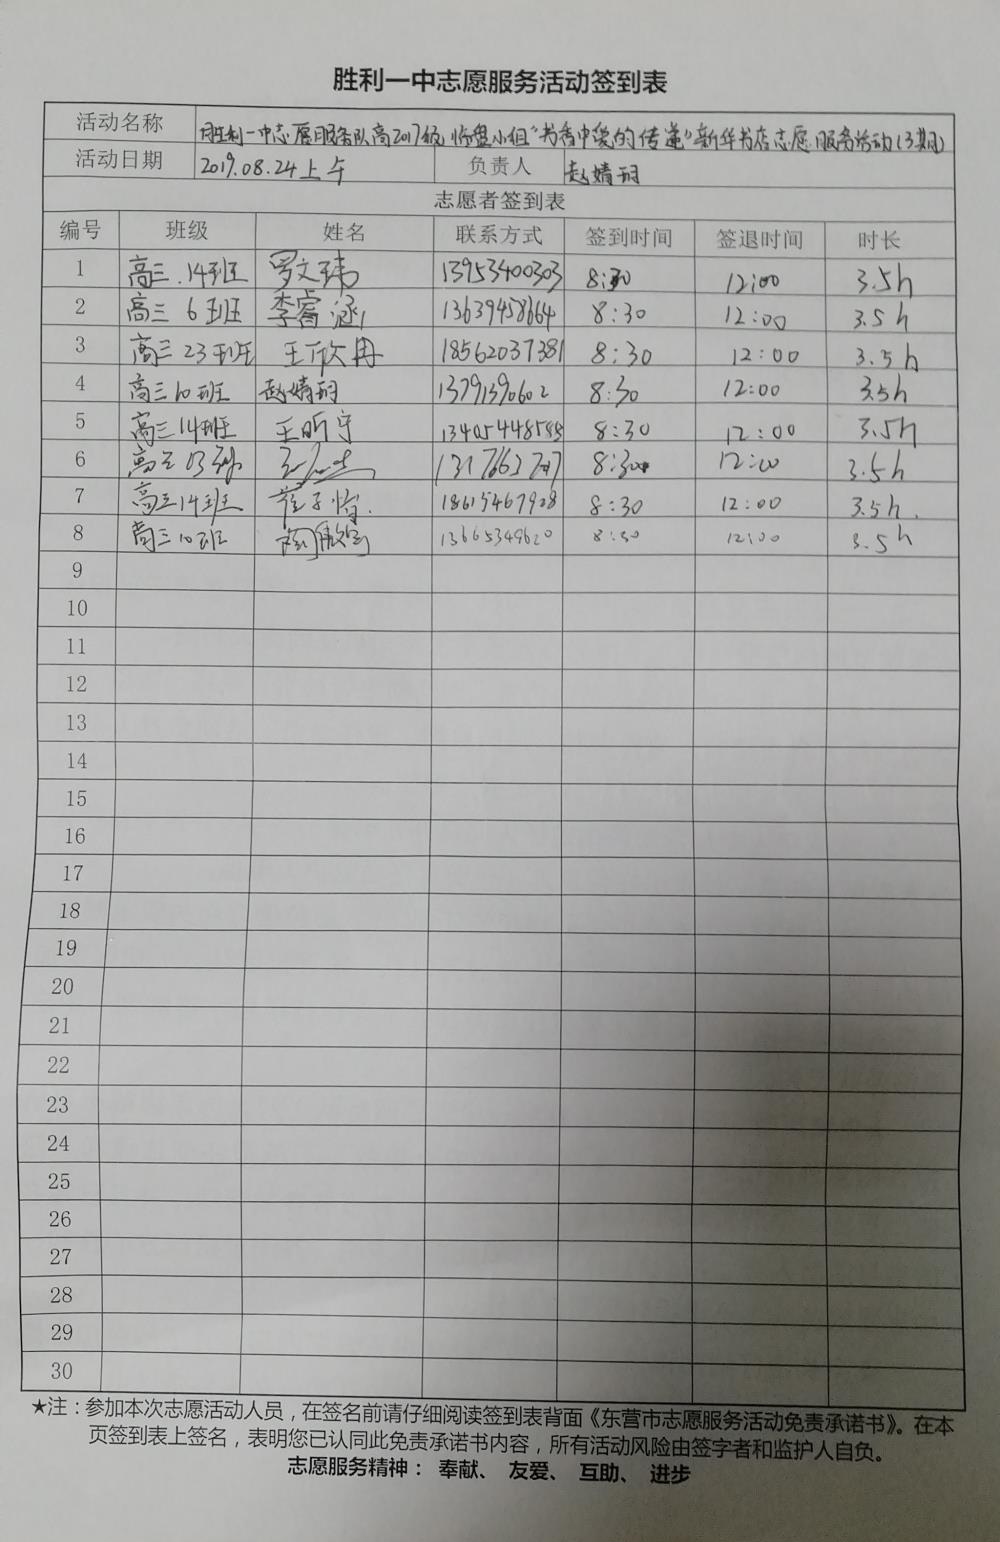 胜利一中志愿服务活动签到表
活动名称 胜利一中志愿服务队高2017级临盘小组"书香中爱的传递"新华书店志愿服务活动(3期)
活动日期 2019.08.24上午 负责人 赵婧
志愿者签到表
编号 班级 姓名 联系方式 签到时间 签退时间 时长
1 高三.14班 罗文玮 13953400303 8:30 12:00 3.5h
2 高三 6班 李睿涵 13639458664 8:30 12:00 3.5h
3 高三23班 王欣冉 18562037381 8:30 12:00 3.5h
4 高三10班 赵婧 13791390602 8:30 12:00 3.5h
5 高三14班 王昕宇 8:30 12:00 3.5h
6 高三 8:30 12:00 3.5h
7 高三14班 崔子怡. 18615467928 8:30 12:00 3.5h.
8 高三10班 13665349620 8:30 12:00 3.5h
9
10
11
12
13
14
15
16
17
18
19
20
21
22
23
24
25
26
27
28
29
30
★注：参加本次志愿活动人员，在签名前请仔细阅读签到表背面《东营市志愿服务活动免责承诺书》。在本
页签到表上签名，表明您已认同此免责承诺书内容，所有活动风险由签字者和监护人自负。
志愿服务精神： 奉献、 友爱、 互助、 进步